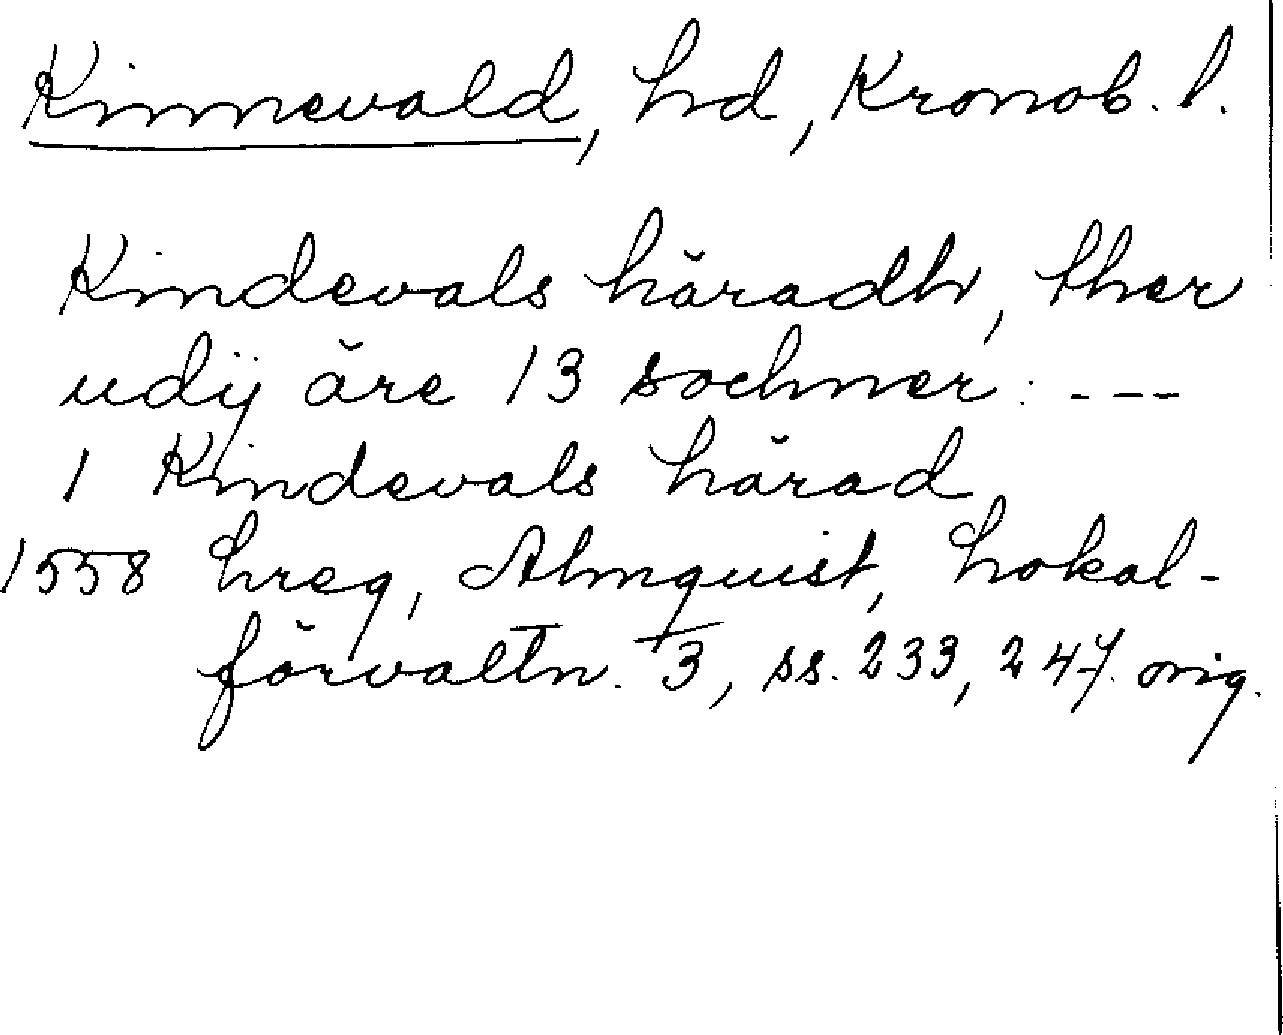 Kinnevald, hd, Kronob. l.
Kindevals häradh, ther
udij äre 13 sochner: ---
1 Kindevals härad
1558 hreg, Almquist, Lokal-
förvaltn. 3, ss. 233, 247. orig.